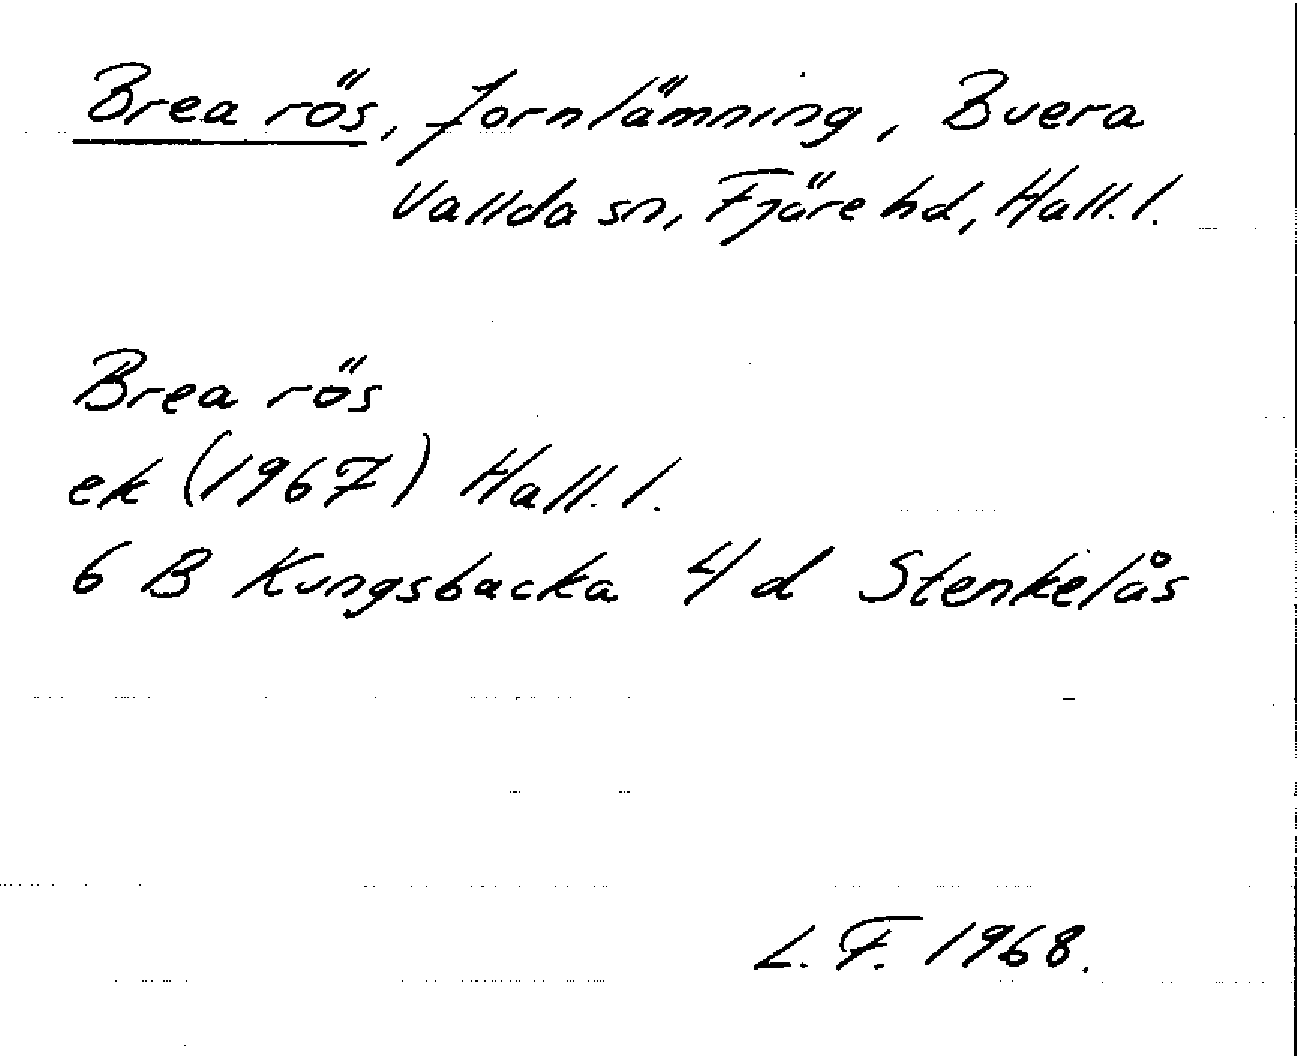 Brea rös, fornlämning, Buera
Vallda sn, Fjäre hd, Hall. l.
Brea rös
ek (1967) Hall. l.
6 B Kungsbacka 4 d Stenkelås
L. F. 1968.